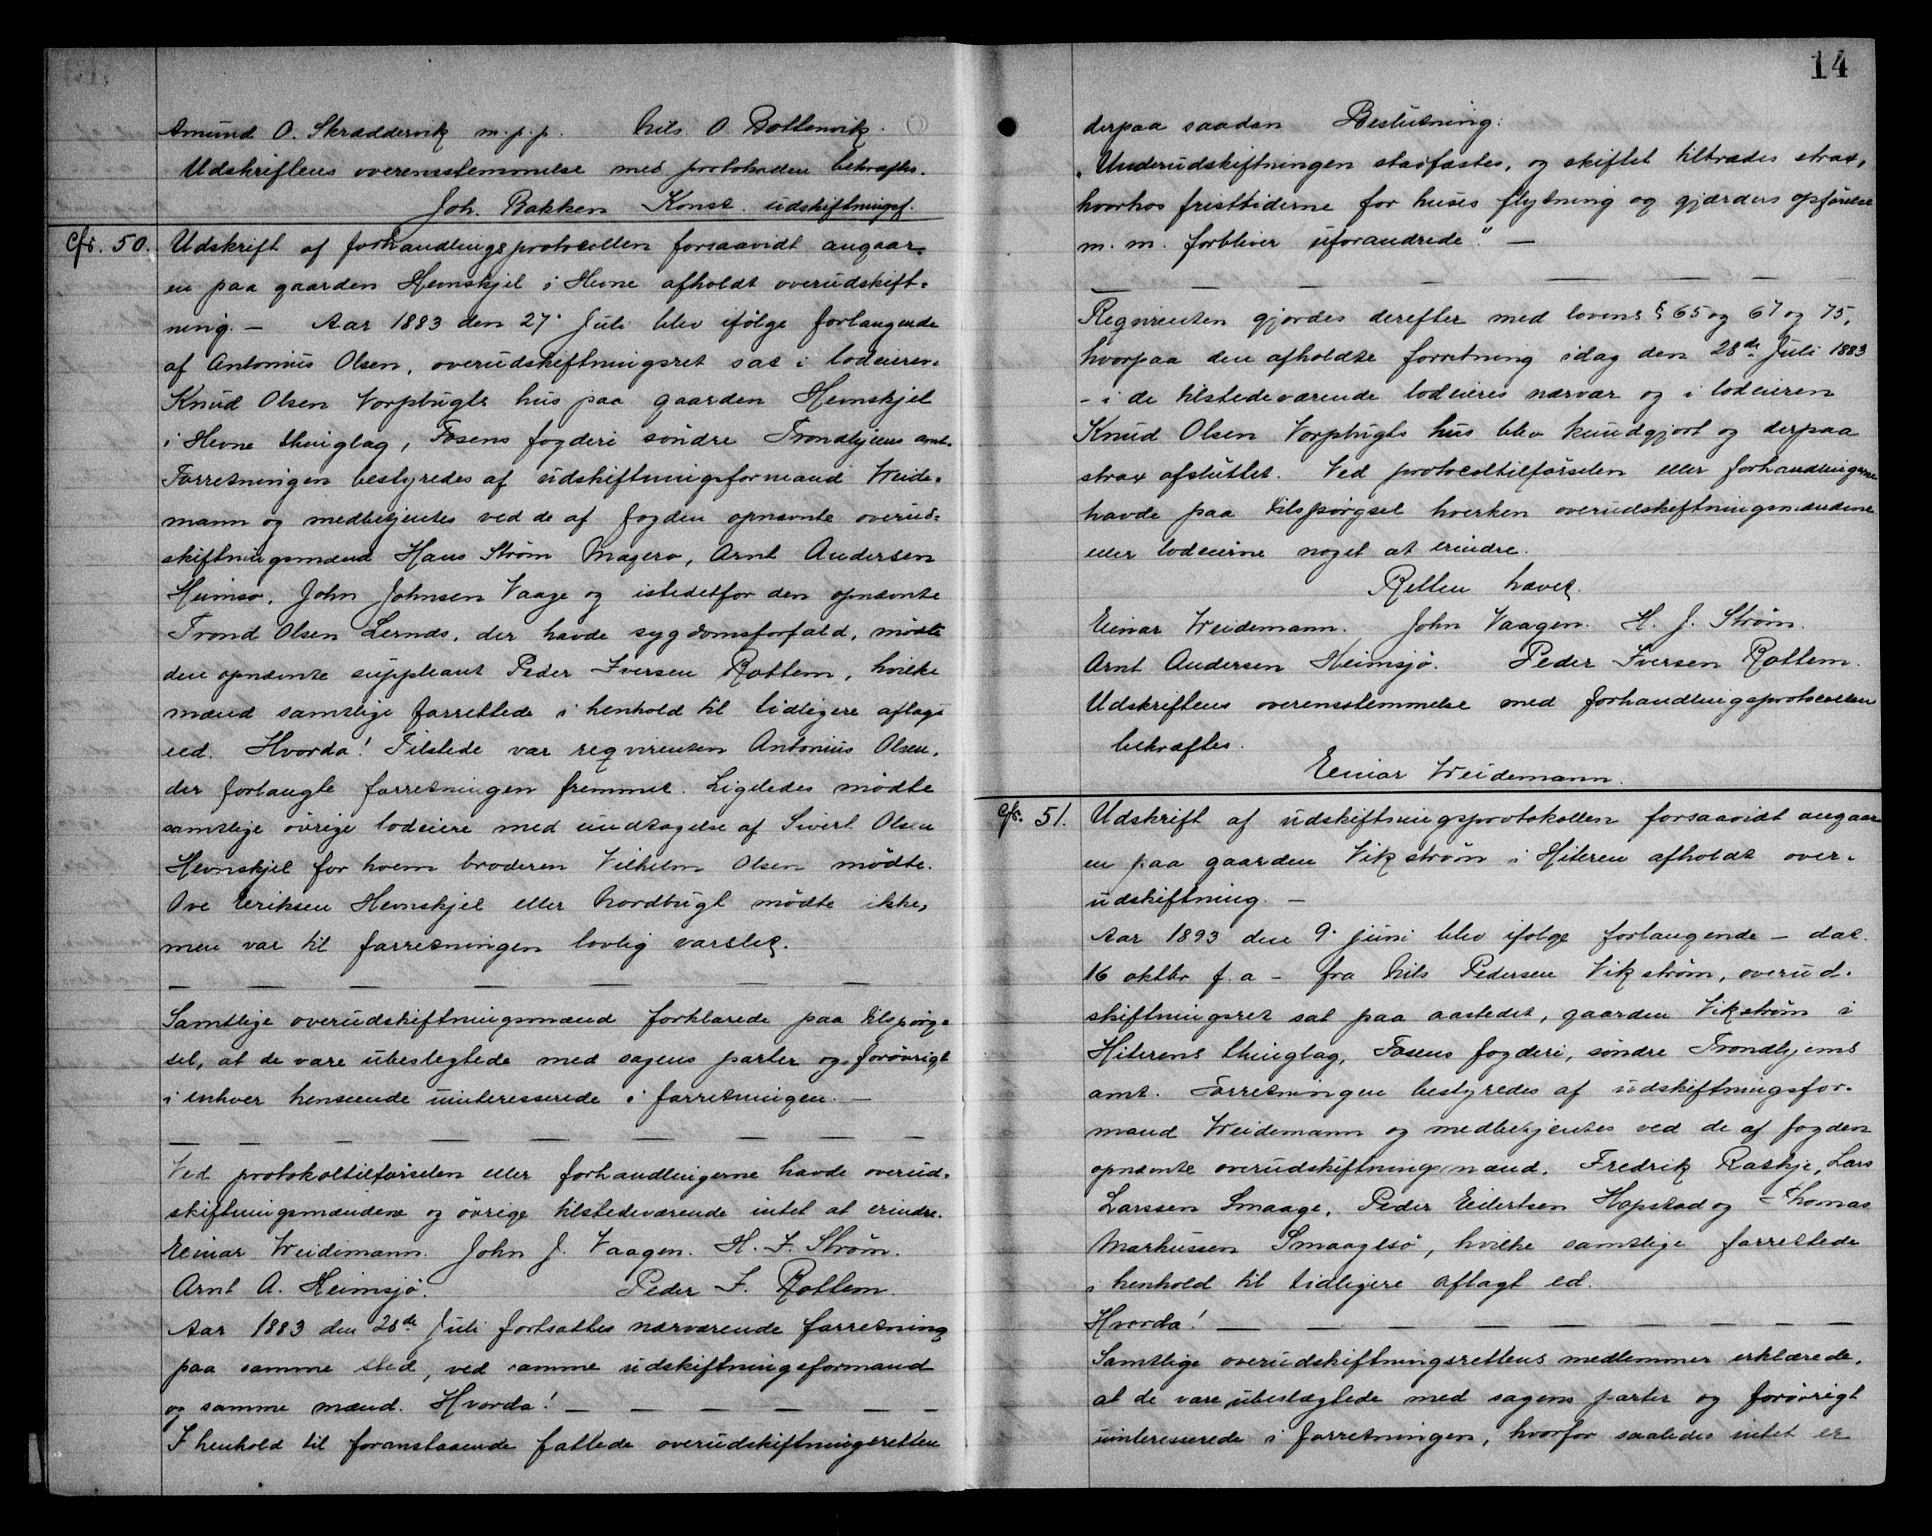 Amund O. Skræddervik m.p.p. Nils O. Bottenvik.
Udskriftens overensstemmelse med protokollen bekræftes.
Joh. Bakken Konst. udskiftningsf.
Cfr. 50. Udskrift af forhandlingsprotocollen forsaavidt angaar
en paa gaarden Hevnskjel i Hevne afholdt overudskift-
ning. — Aar 1883 den 27. Juli blev ifölge forlangende
af Antonius Olsen, overudskiftningsret sat i lodeieren
Knud Olsen Vorpbugts hus paa gaarden Hevnskjel
i Hevne thinglag, Fosens fogderi söndre Trondhjems amt.
Forretningen bestyredes af udskiftningsformand Weide-
mann og medbetjentes ved de af fogden opnævnte overud-
skiftningsmænd Hans Strøm Magerø, Arnt Andersen
Heimsø, John Johnsen Vaage og istedetfor den opnævnte
Trond Olsen Lernes, der havde sygdomsforfald, mödte
den opnævnte suppleant Peder Iversen Rottem, hvilke
mænd samtlige forrettede i henhold til tidligere aflagt
ed. Hvorda! Tilstede var reqvirenten Antonius Olsen,
der forlangte forretningen fremmet. Ligeledes mödte
samtlige övrige lodeiere med undtagelse af Sivert Olsen
Hevnskjel for hvem broderen Vilhelm Olsen mödte.
Ove Eriksen Hevnskjel eller Nordbugt mödte ikke,
men var til forretningen lovlig varslet.
— — — — — — — —
Samtlige overudskiftningsmænd forklarede paa tilspörg-
sel, at de vare ubeslegtede med sagens parter og forövrigt
i enhver henseende uinteresserede i forretningen. —
— — — — — — — — —
Ved protokoltilførselen eller forhandlingerne havde overud-
skiftningsmændene og övrige tilstedeværende intet at erindre.
Einar Weidemann. John J. Vaagen. H. J. Strøm.
Arnt A. Heimsjö. Peder I. Rottem.
Aar 1883 den 28de Juli fortsattes nærværende forretning
paa samme sted, ved samme udskiftningsformand
og samme mænd. Hvorda! — — — — — —
I henhold til foranstaaende fattede overudskiftningsretten
14
derpaa saadan Beslutning:
"Underudskiftningen stadfæstes, og skiftet tiltrædes strax,
hvorhos fristtiderne for huses flytning og gjærders opförelse
m. m. forbliver uforandrede." —
— — — — — — — —
Reqvirenten gjordes derefter med lovens § 65 og 67 og 75,
hvorpaa den afholdte forretning idag den 28de Juli 1883
- i de tilstedeværende lodeieres nærvær og i lodeieren
Knud Olsen Vorpbugts hus blev kundgjort og derpaa
strax afsluttet. Ved protocoltilførselen eller forhandlingerne
havde paa tilspörgsel hverken overudskiftningsmændene
eller lodeierne noget at erindre.
Retten hævet.
Einar Weidemann. John Vaagen. H. J. Strøm.
Arnt Andersen Heimsjö. Peder Iversen Rottem.
Udskriftens overensstemmelse med forhandlingsprotocollen
bekræftes.
Einar Weidemann.
Cfr. 51. Udskrift af udskiftningsprotokollen forsaavidt angaar
en paa gaarden Vikstrøm i Hiteren afholdt over-
udskiftning. —
Aar 1893 den 9. juni blev ifolge forlangende — dat.
16 oktbr f. a — fra Nils Pedersen Vikstrøm, overud-
skiftningsret sat paa aastedet, gaarden Vikstrøm i
Hiterens thinglag, Fosens fogderi, söndre Trondhjems
amt. Forretningen bestyredes af udskiftningsfor-
mand Weidemann og medbetjentes ved de af fogden
opnævnte overudskiftningsmænd. Fredrik Raskje, Lars
Larssen Smaage, Peder Eilertsen Hopstad og Thomas
Markussen Smaagesö, hvilke samtlige forrettede
i henhold til tidligere aflagt ed.
Hvorda! — — — — — — — —
Samtlige overudskiftningsrettens medlemmer erklærede,
at de vare ubeslægtede med sagens parter og forövrigt
uinteresserede i forretningen, hvorfor saaledes intet er